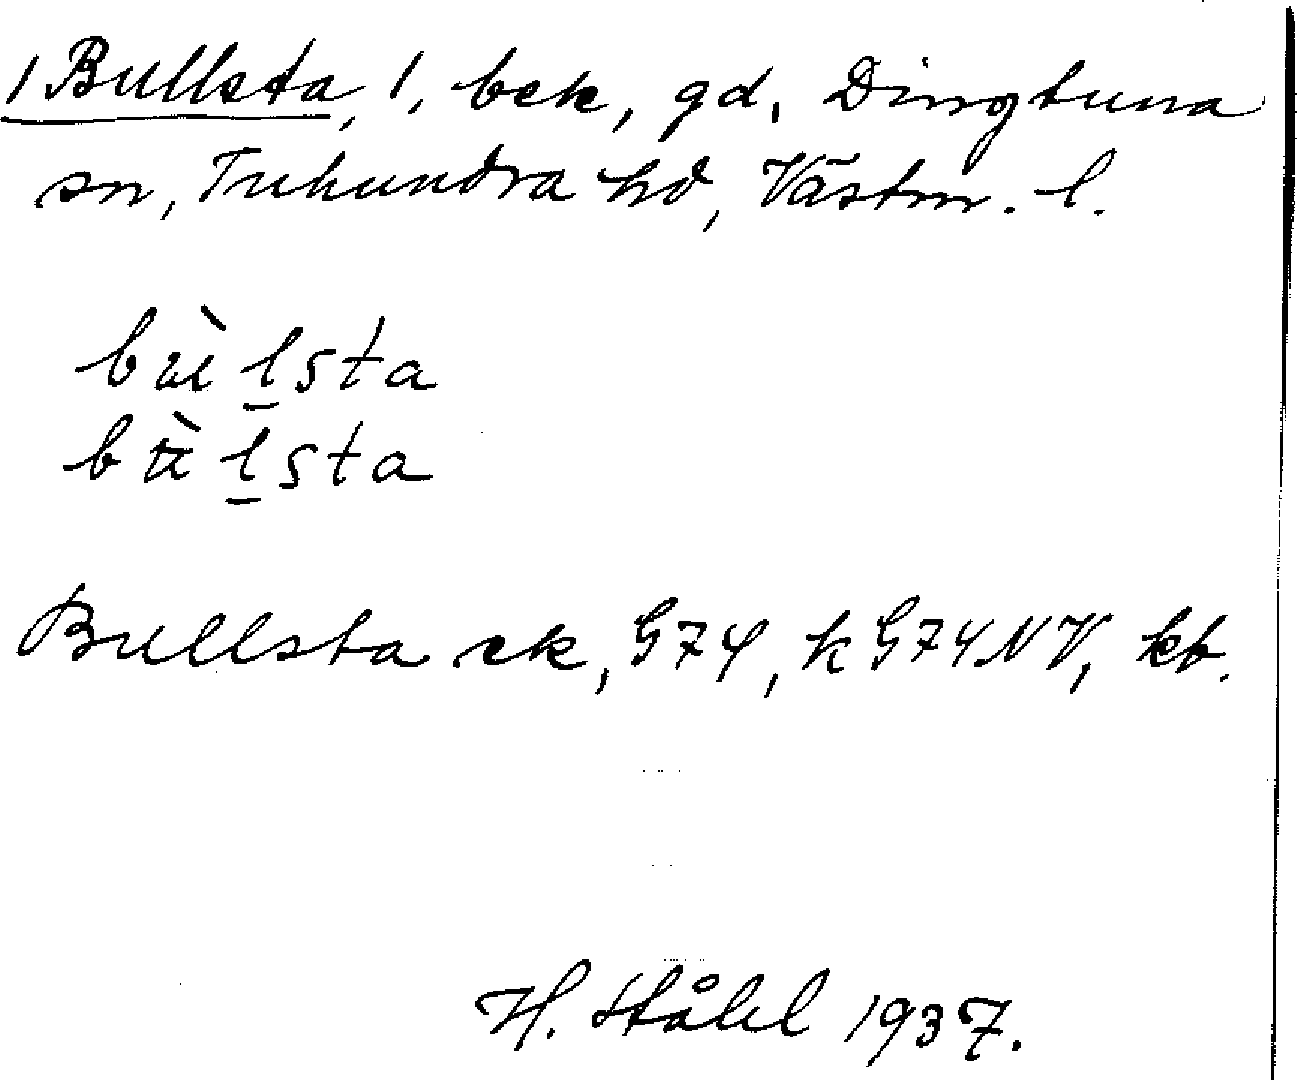 1 Bullsta, 1, bek, gd, Dingtuna
sn, Tuhundra hd, Västm. l.
bu̇̀l̲sta
bǜl̲sta
Bullsta ek, G74, k G74NV, kb.
H. Ståhl 1937.